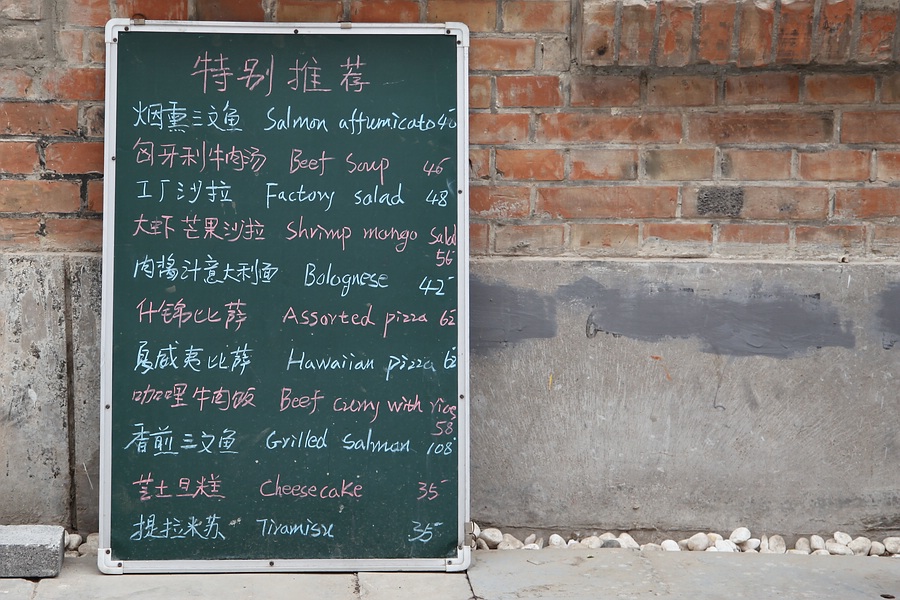 特别推荐
烟熏三文鱼 Salmon affumicato
匈牙利牛肉汤 Beef Soup 45
工厂沙拉 Factory salad 48
大虾芒果沙拉 Shrimp mango Salad
56
肉酱汁意大利面 Bolognese 42
什锦比萨 Assorted pizza 62
夏威夷比萨 Hawaiian pizza
咖哩牛肉饭 Beef curry with rice
58
香煎三文鱼 Grilled salmon 108
芝士旦糕 Cheesecake 35
提拉米苏 Tiramisu 35